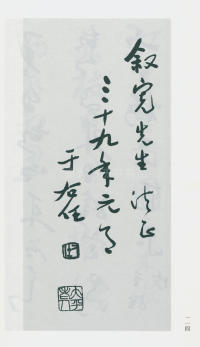 叙宽先生法正
三十九年元旦
于右任
一二四